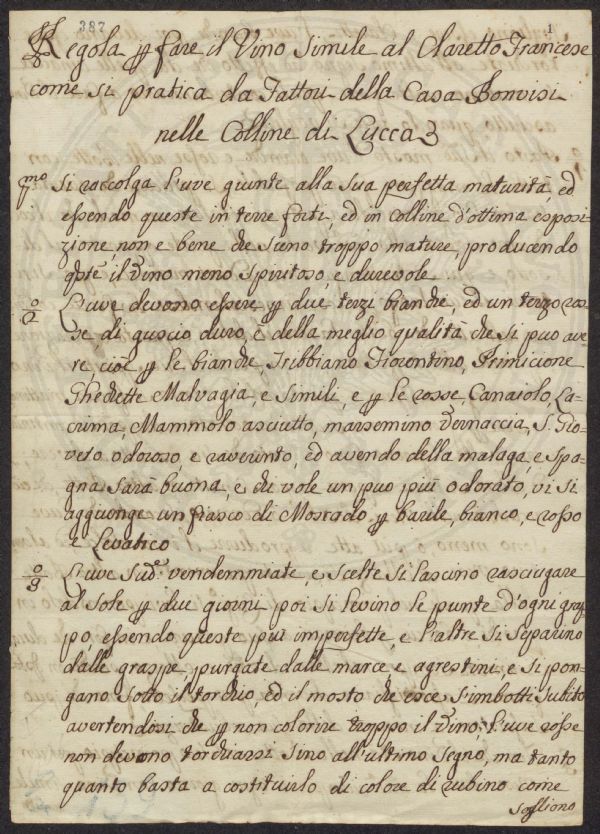 387 1
Regola p fare il Vino Simile al Claretto Francese
come si pratica da Fattori della Casa Bonvisi
nelle Colline di Lucca
pmo Si raccolga l'uve giunte alla sua perfetta maturità, ed
essendo queste in terre forti, ed in colline d'ottima esposi-
zione, non e bene che sieno troppo mature, producendo
qste il vino meno spiritoso, e durevole
2o L'uve devono essere p due terzi bianche, ed un terzo ros-
se di guscio duro, è della meglio qualità che si può ave
re, cioè p le bianche, Tribbiano Fiorentino, Primiccione
Malvagia, e simili, e p le rosse, Canaiolo, La-
crima, Mammolo asciutto, marsemino Vernaccia, S. Gio-
veto odoroso, e raverinto, ed avendo della malaga, e spa-
gna sarà buona, e chi vole un puo più odorato, vi si
aggiunge un fiasco di Moscado p barile, bianco, e rosso
e Levatico
3o L'uve sude vendemmiate, e scelte si lascino rasciugare
al sole p due giorni poi si levino le punte d'ogni grap
po, essendo queste più imperfette, e l'altre si separino
dalle graspe, purgate dalle marce e agrestini, e si pon-
gano sotto il torchio, ed il mosto che esce s'imbotti subito
avertendosi che p non colorire troppo il vino, l'uve rosse
non devono torchiarsi sino all'ultimo segno, ma tanto
quanto basta a costituirlo di colore di rubino come
sogliono